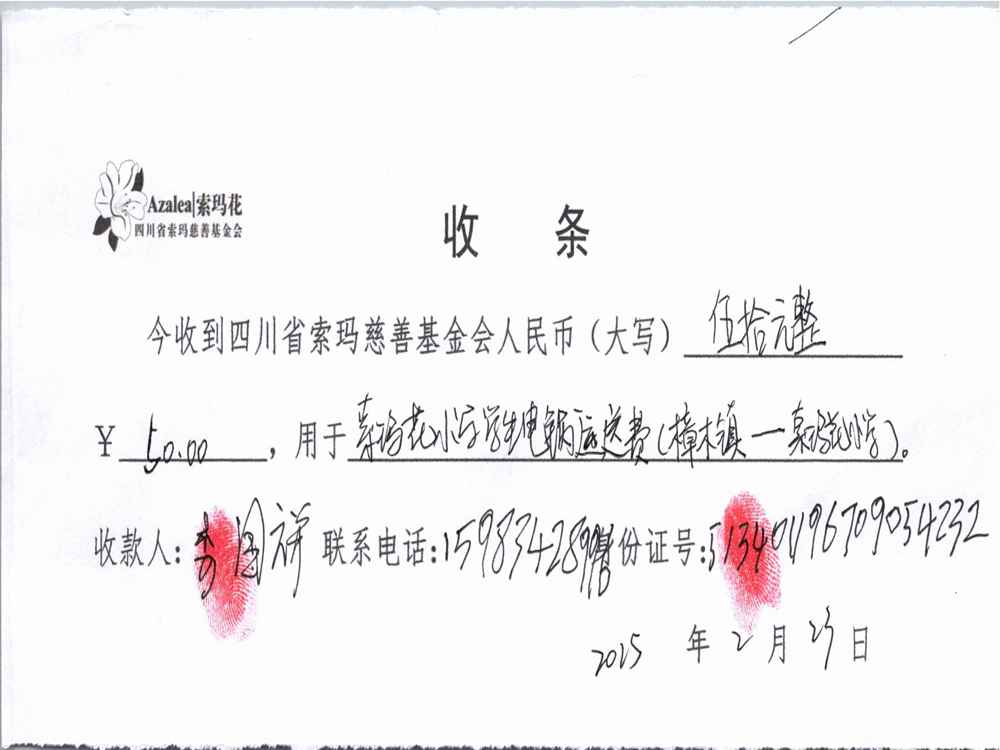 Azalea|索玛花
四川省索玛慈善基金会
收 条
今收到四川省索玛慈善基金会人民币（大写）伍拾元整
￥50.00，用于索玛花小学学生电锅运送费（樟木镇一索玛花小学）。
收款人：李国祥 联系电话：159834289 份证号：513401196709054232
2025 年 2 月 23 日